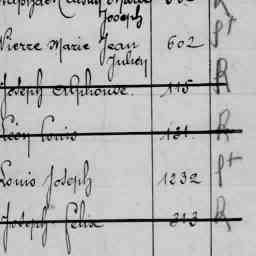 Joseph
Pierre Marie Jean 602 Pt
Julien
Joseph Alphonse. 115 R
Léon Louis 181 R
Louis Joseph 1232 Pt
Joseph Félix 313 R